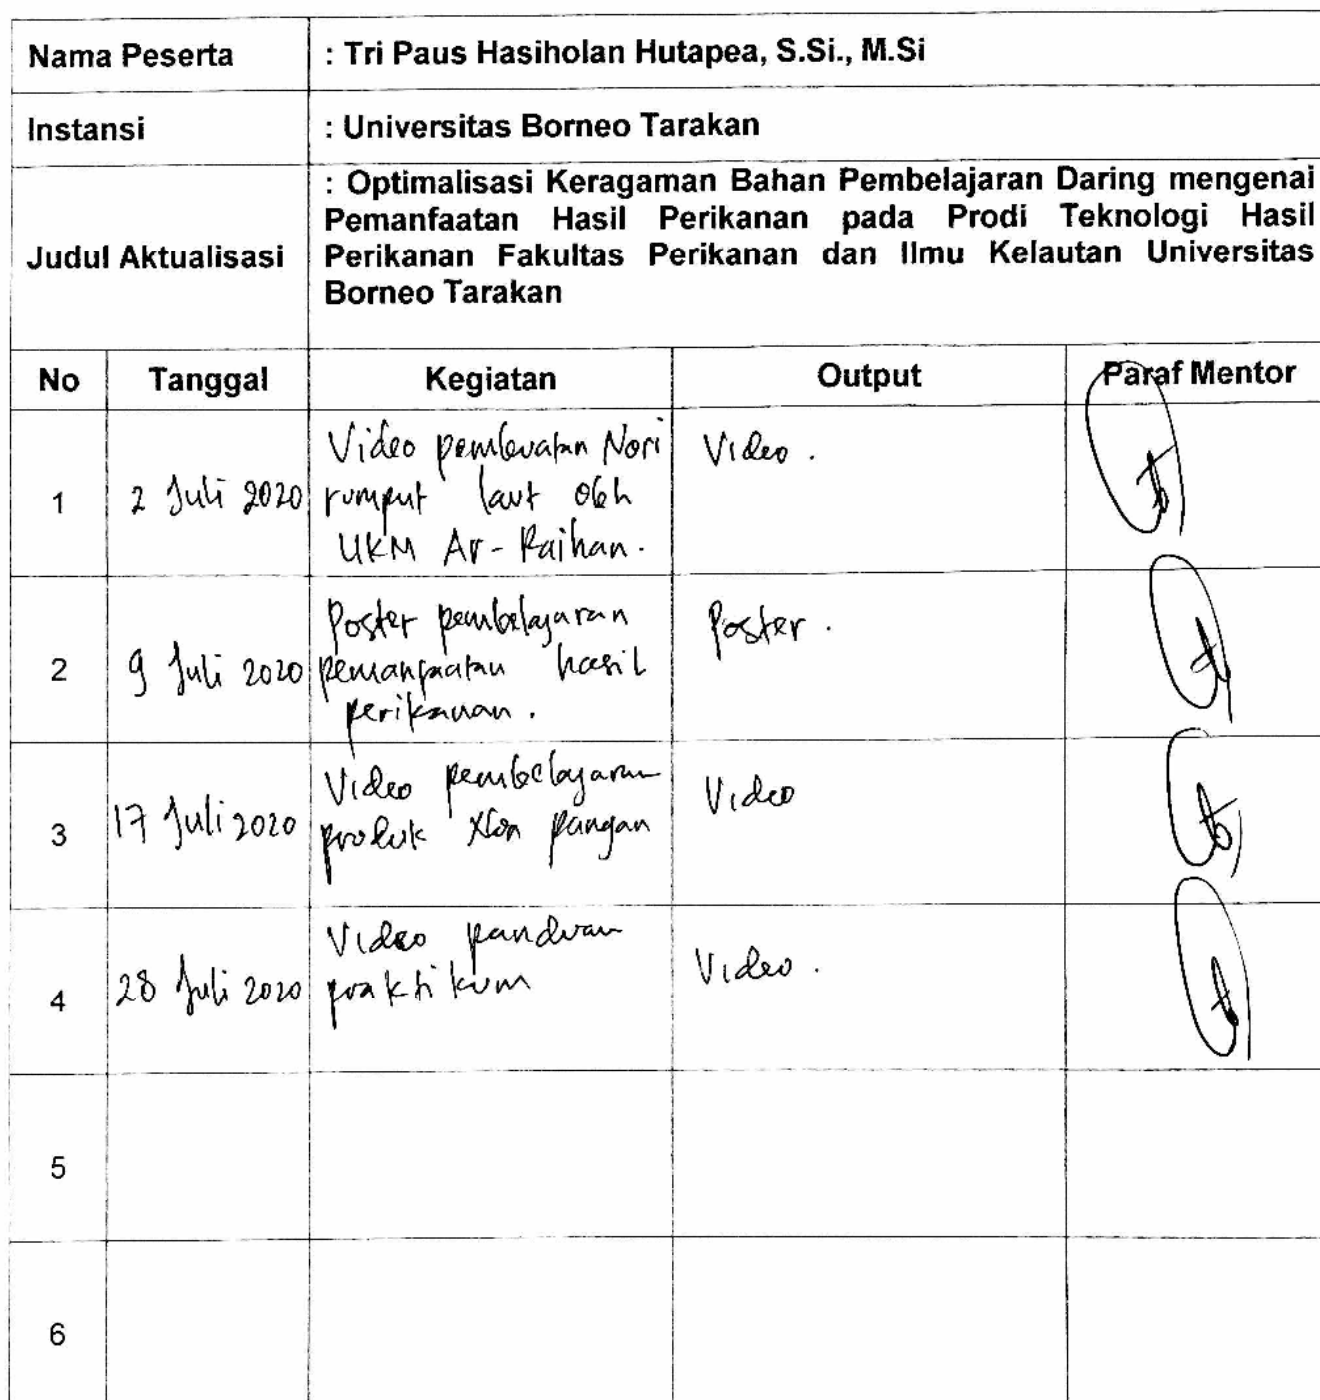 Nama Peserta : Tri Paus Hasiholan Hutapea, S.Si., M.Si
Instansi : Universitas Borneo Tarakan
Judul Aktualisasi : Optimalisasi Keragaman Bahan Pembelajaran Daring mengenai
Pemanfaatan Hasil Perikanan pada Prodi Teknologi Hasil
Perikanan Fakultas Perikanan dan Ilmu Kelautan Universitas
Borneo Tarakan
No Tanggal Kegiatan Output Paraf Mentor
1 2 Juli 2020 Video pembuatan Nori Video .
rumput laut oleh
UKM Ar-Raihan.
2 9 Juli 2020 Poster pembelajaran Poster .
pemanfaatan hasil
perikanan .
3 17 Juli 2020 Video pembelajaran Video
produk pangan
4 28 Juli 2020 Video panduan Video .
praktikum
5
6